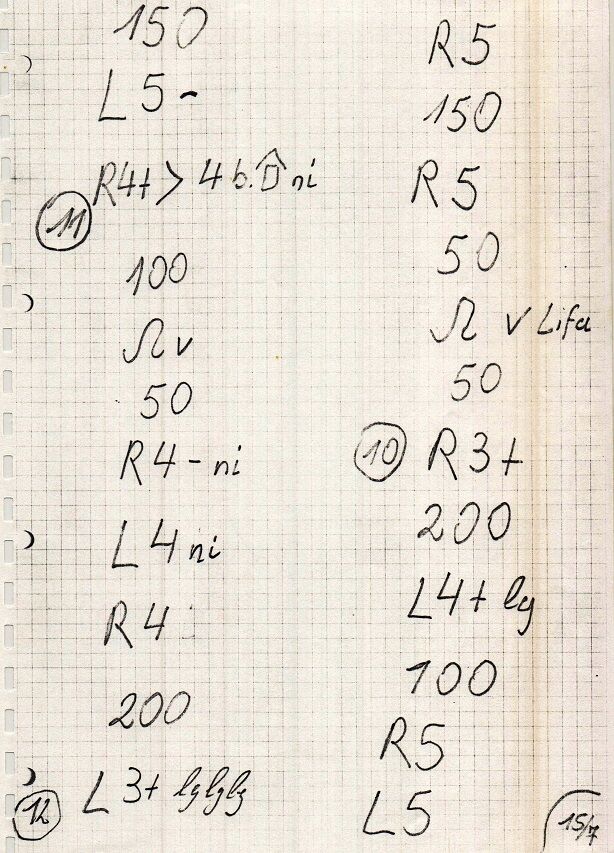 150
L 5 -
R4+ > 4 b. ni
11
100
Ω v
50
R 4 - ni
L 4 ni
R 4
200
12 L 3+ lg lg lg
R 5
150
R 5
50
Ω v Lifa
50
10 R 3 +
200
L 4 + lg
100
R 5
L 5
15/7